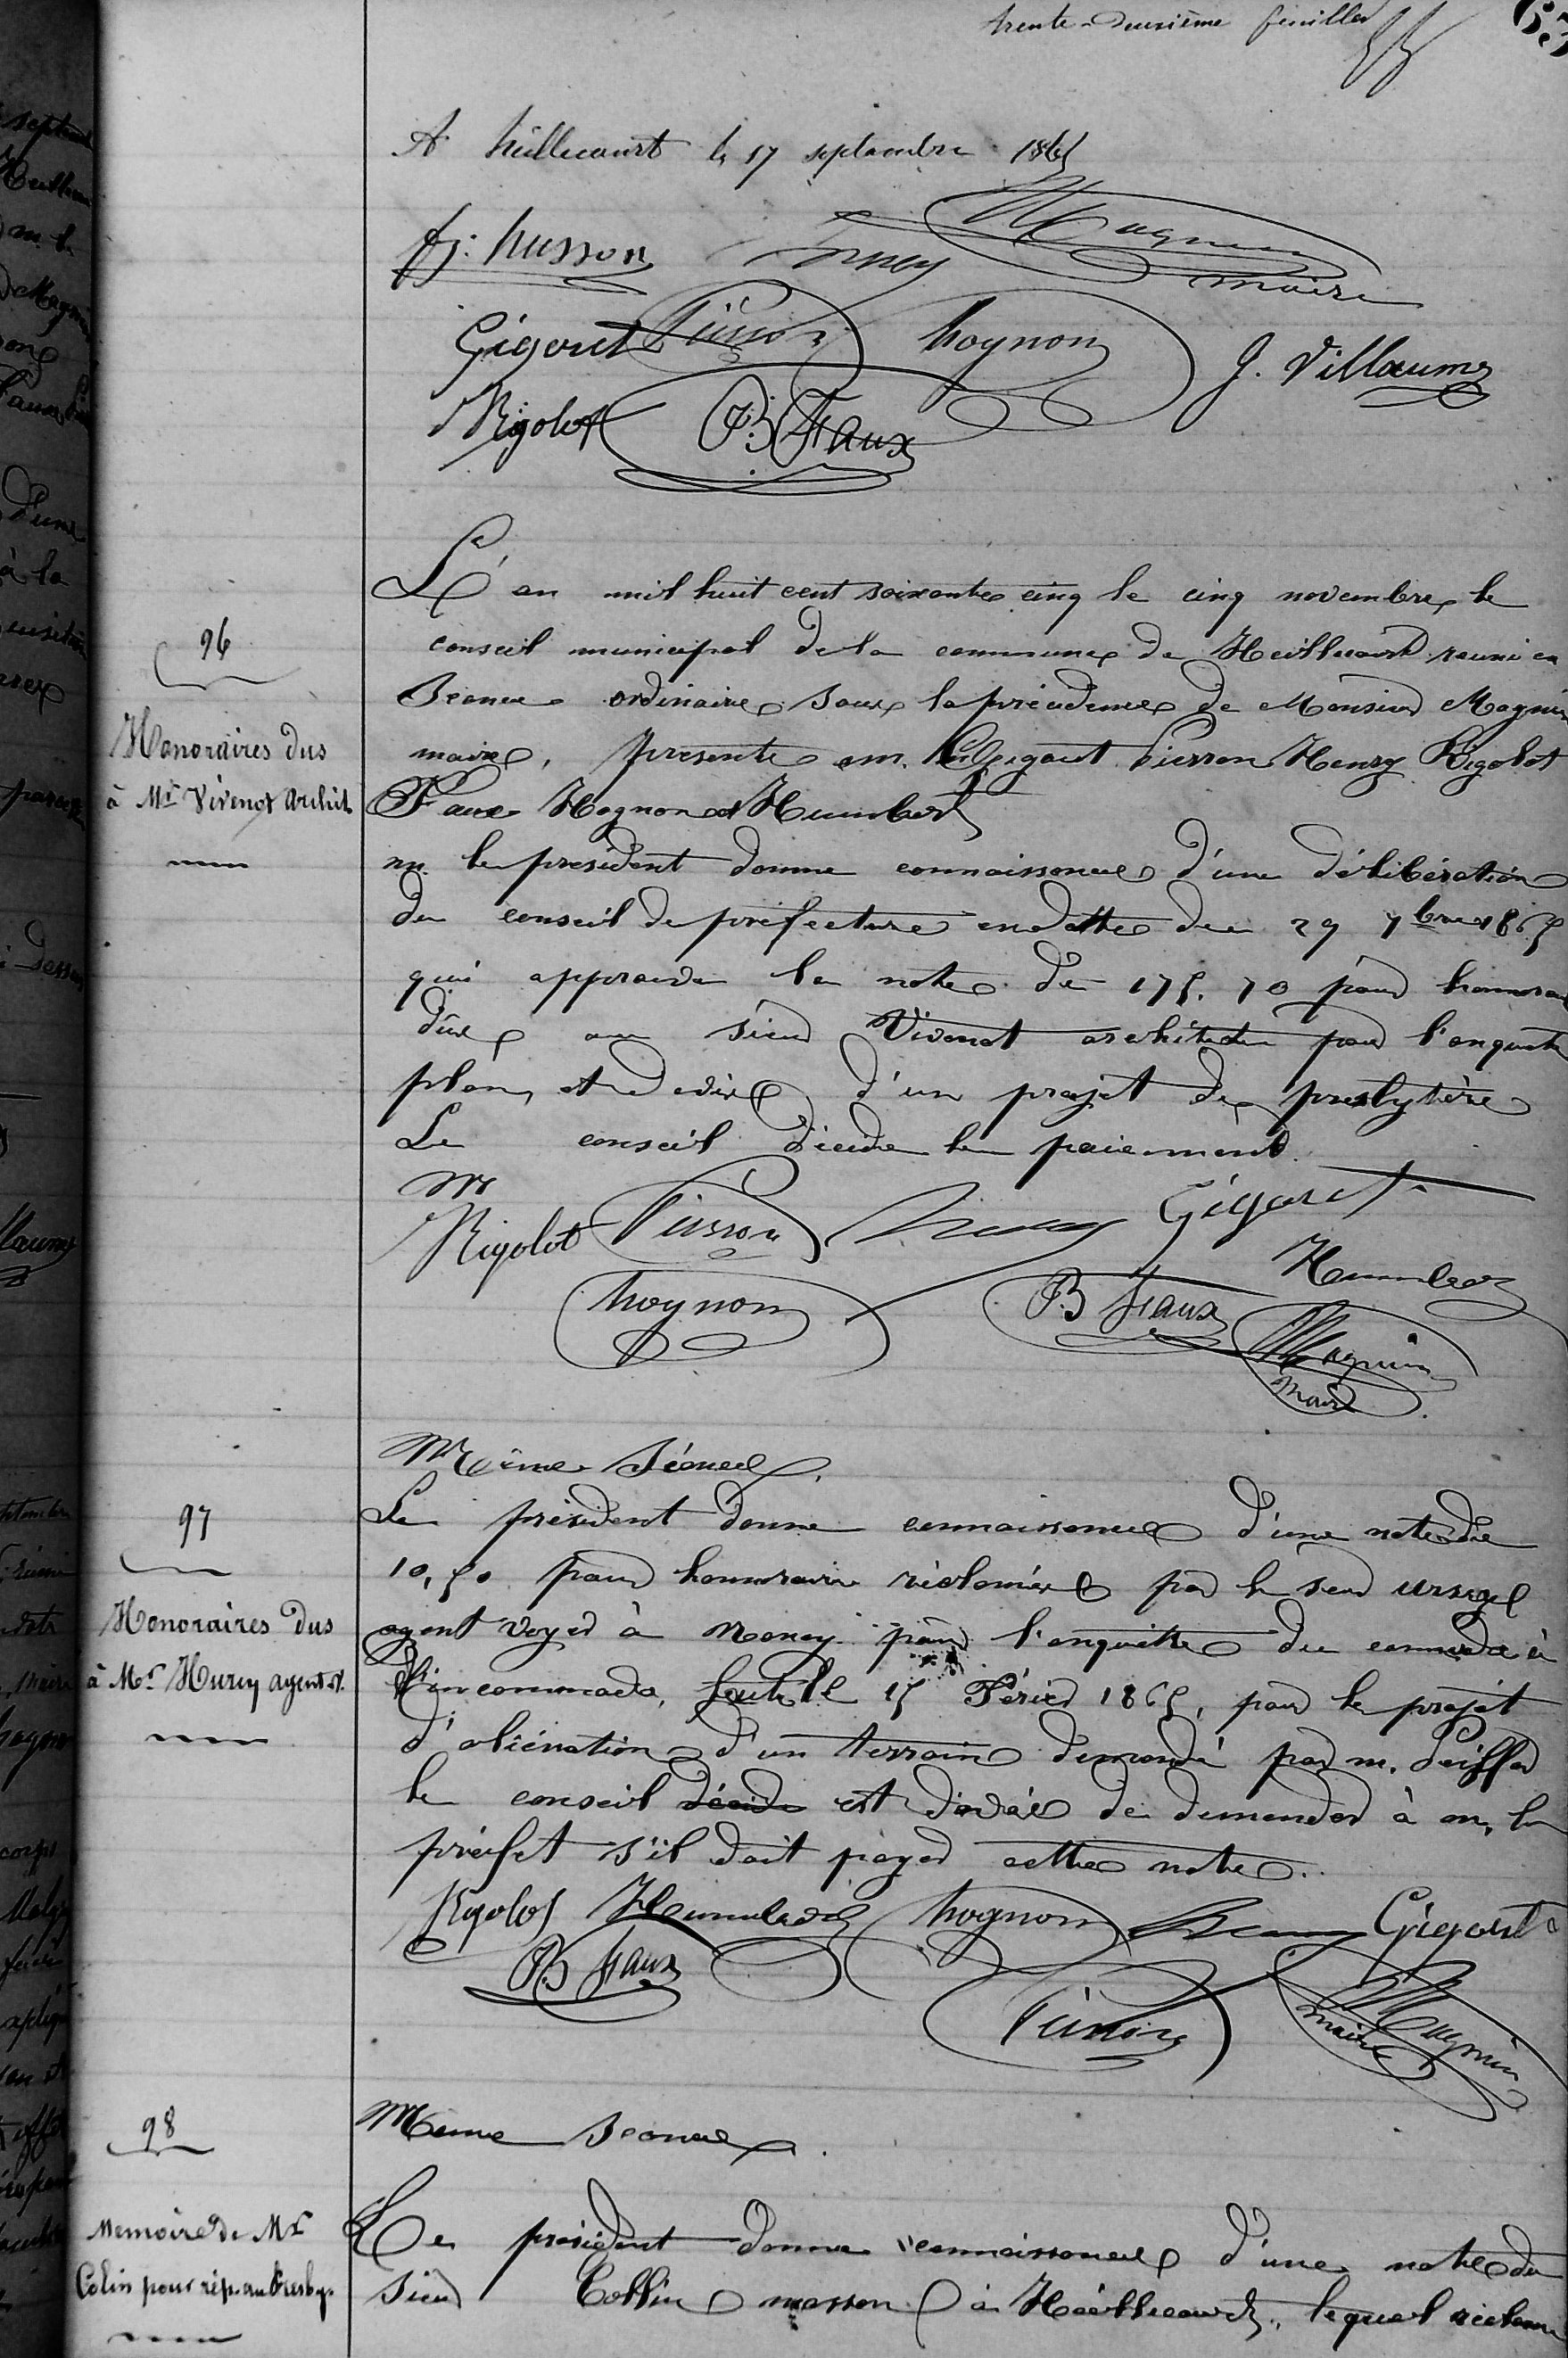 trente-deuxième feuillet
63
A heillecourt le 17 septembre 1865
fj: husson
Magnin
maire
Gigout Pierson hognon J. Villaume
Rigolot JB Faux
L'an mil huit cent soixante cinq le cinq novembre le
96
conseil municipal de la commune de Heillecourt reuni en
Séance ordinaire sous la présidence de Monsieur Magnin
Honoraires dus
à Mr Vivenot archit.
maire, presents mm. Gigout Pierson Henry Rigolot
Faux Hognon et Humbert
m. le président donne connaissance d'une délibération
du conseil de préfecture en datte du 29 7bre 1865
qui approuve la note de 175.70 pour honorai
dûs au sieur Vivenot architecte pour l'enquete
plan, et devis d'un projet de presbytère
Le conseil décide le paiement.
Rigolot Pierson Henry Gigout
Humbert
hognon JB Faux
Magnin
maire
Même Séance
97
Le président donne connaissance d'une note de
10,50 pour honoraire réclamés par le sieur
Honoraires dus
à Mr. Hurey agent v.
agent voyer à Nancy pour l'enquitte du commodo et
d'incommodo, faite le 15 Février 1865, pour le projet
d'aliénation d'un terrain demandé par m.
le conseil décide est d'avis de demander à m. le
préfet s'il doit payer cette note.
Rigolot Humbert hognon Henry Gigout
JB Faux
Pierson
Magnin
maire
98
Meme Seance
Memoire de Mr
Colin pour rép. au Presby.
Le président donne connaissance d'une note du
sieur Collin masson à Heillecourt, lequel réclame